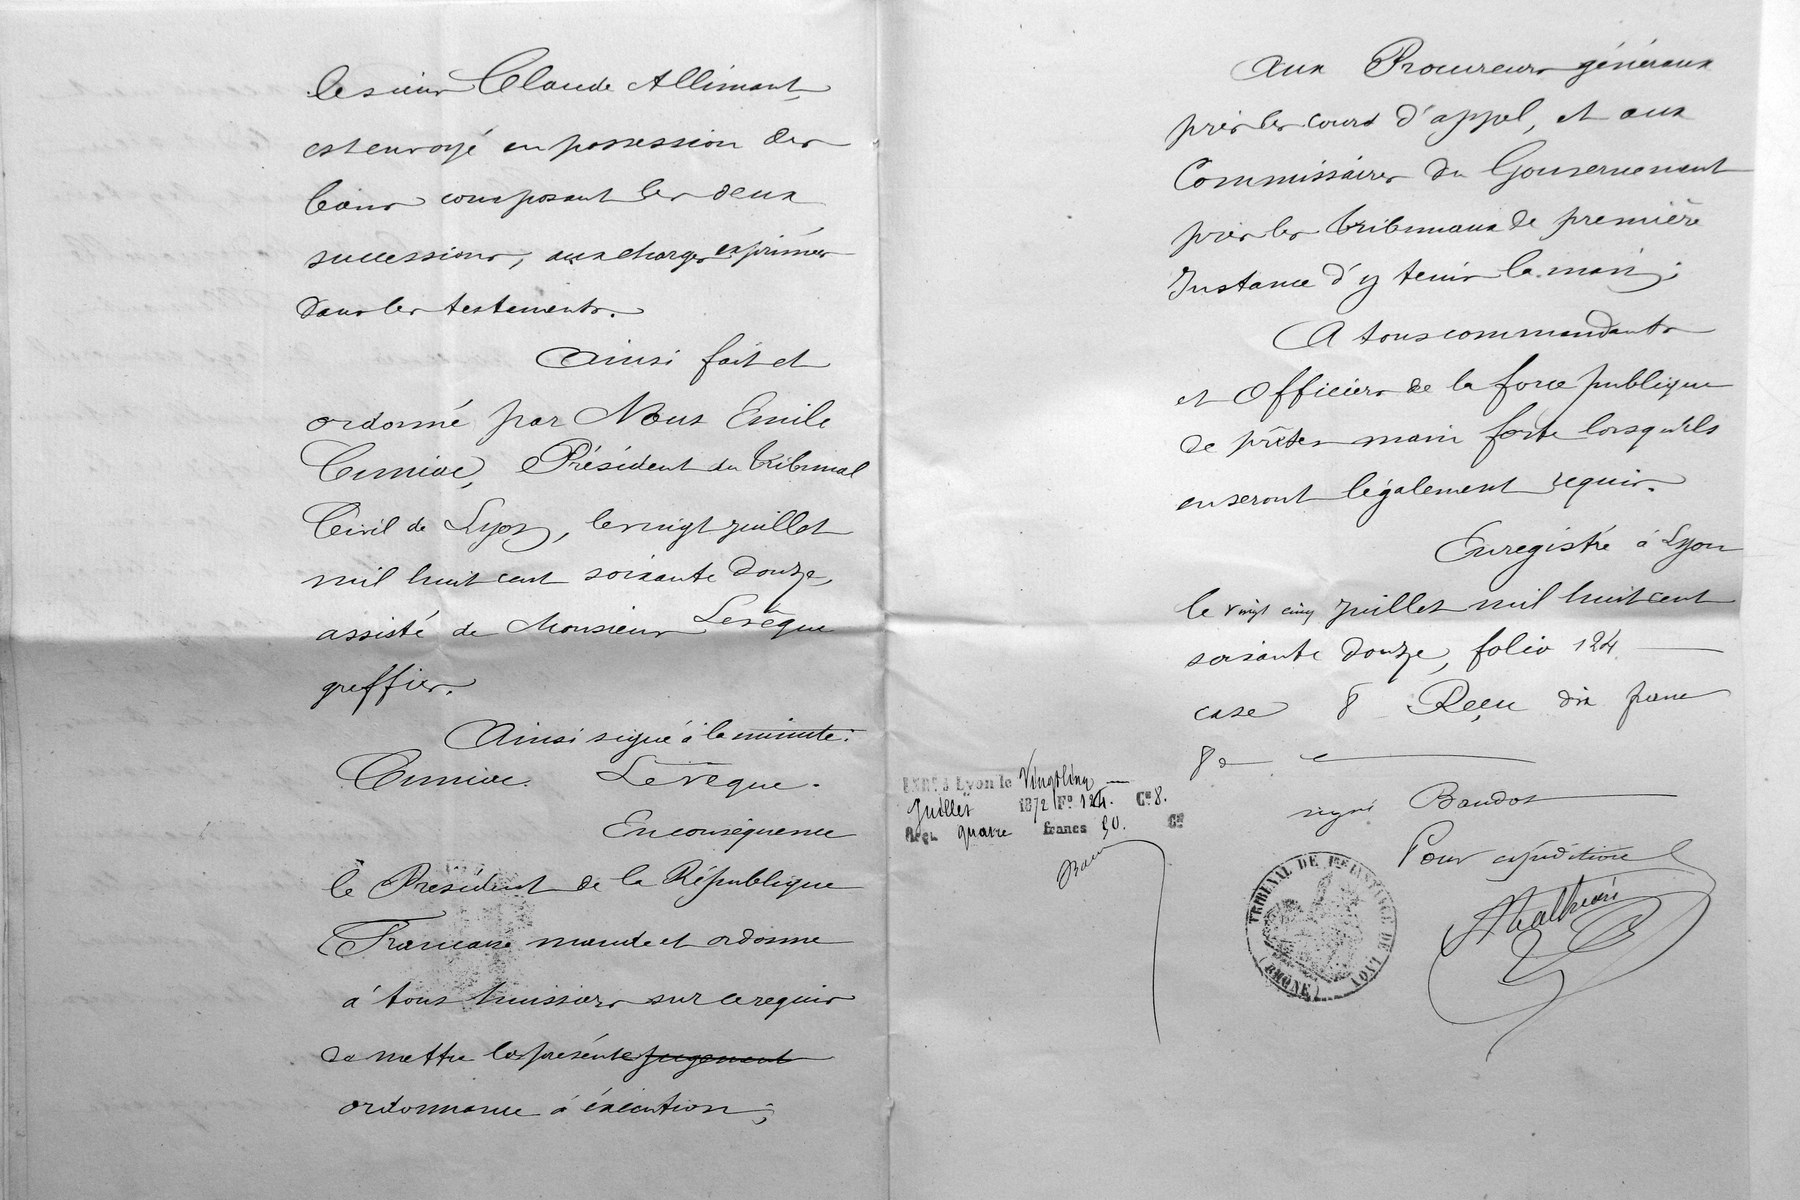 le sieur Claude Allimant,
est envoyé en possession des
biens composant les deux
successions, aux charges exprimées
dans les testaments.
Ainsi fait et
ordonné par Nous Emile
Cuniac, Président du tribunal
Civil de Lyon, le vingt juillet
mil huit cent soixante douze,
assisté de Monsieur Levêque
greffier.
Ainsi signé à la minute:
Cuniac. Levêque.
En conséquence
le Président de la République
Française mande et ordonne
à tous huissiers sur ce requis
de mettre la présente jugement
ordonnance à éxécution;
Aux Procureurs généraux
près les cours d'appel, et aux
Commissaires du Gouvernement
près les tribunaux de première
Instance d'y tenir la main;
A tous commandants
et Officiers de la force publique
de prêter main forte lorsqu'ils
en seront légalement requis.
Enregistré à Lyon
le vingt cinq juillet mil huit cent
soixante douze, folio 124
case 8 Reçu dix franc
signé Baudot
Pour expédition
Mathieu
ENR. à Lyon le Vingt Cinq
Juillet 1872 F° 124. Ce 8.
Reçu quatre francs 50. Ce
TRIBUNAL DE 1RE INSTANCE DE LYON
(RHÔNE)